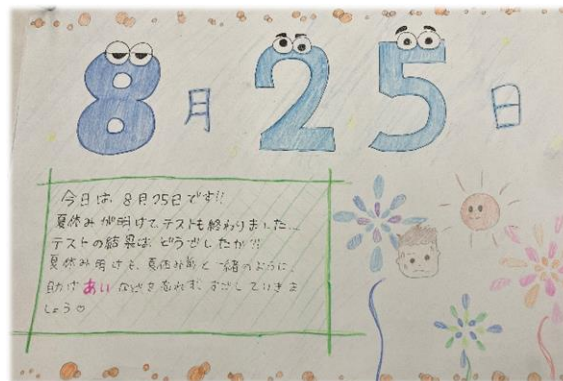 8月25日
今日は、8月25日です!!
夏休みが明けて、テストも終わりました...
テストの結果は、どうでしたか?!
夏休み明けも、夏休み前と一緒のように、
助け あい などを忘れず、すごしていきま
しょう